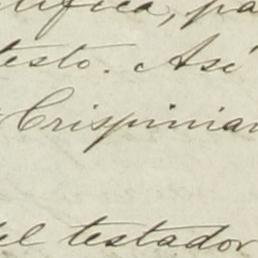 tifica, pa
testo. Así
Crispinian
el testador